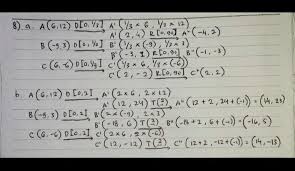 8) a. A(6,12) D[0,1/3] → A'(1/3 × 6, 1/3 × 12)
A'(2,4) R[0,90] → A"(-4,2)
B(-9,3) D[0,1/3] → B'(1/3 × (-9), 1/3 × 3)
B'(-3,1) R[0,90] → B"(-1,-3)
C(6,-6) D[0,1/3] → C'(1/3 × 6, 1/3 × (-6))
C'(2,-2) R[0,90] → C"(2,2)
b. A(6,12) D[0,2] → A'(2×6, 2×12)
A'(12,24) T(2 -1) → A"(12+2, 24+(-1)) = (14,23)
B(-9,3) D[0,2] → B'(2×(-9), 2×3)
B'(-18,6) T(2 -1) → B"(-18+2, 6+(-1)) = (-16,5)
C(6,-6) D[0,2] → C'(2×6, 2×(-6))
C'(12,-12) T(2 -1) → C"(12+2, -12+(-1)) = (14,-13)